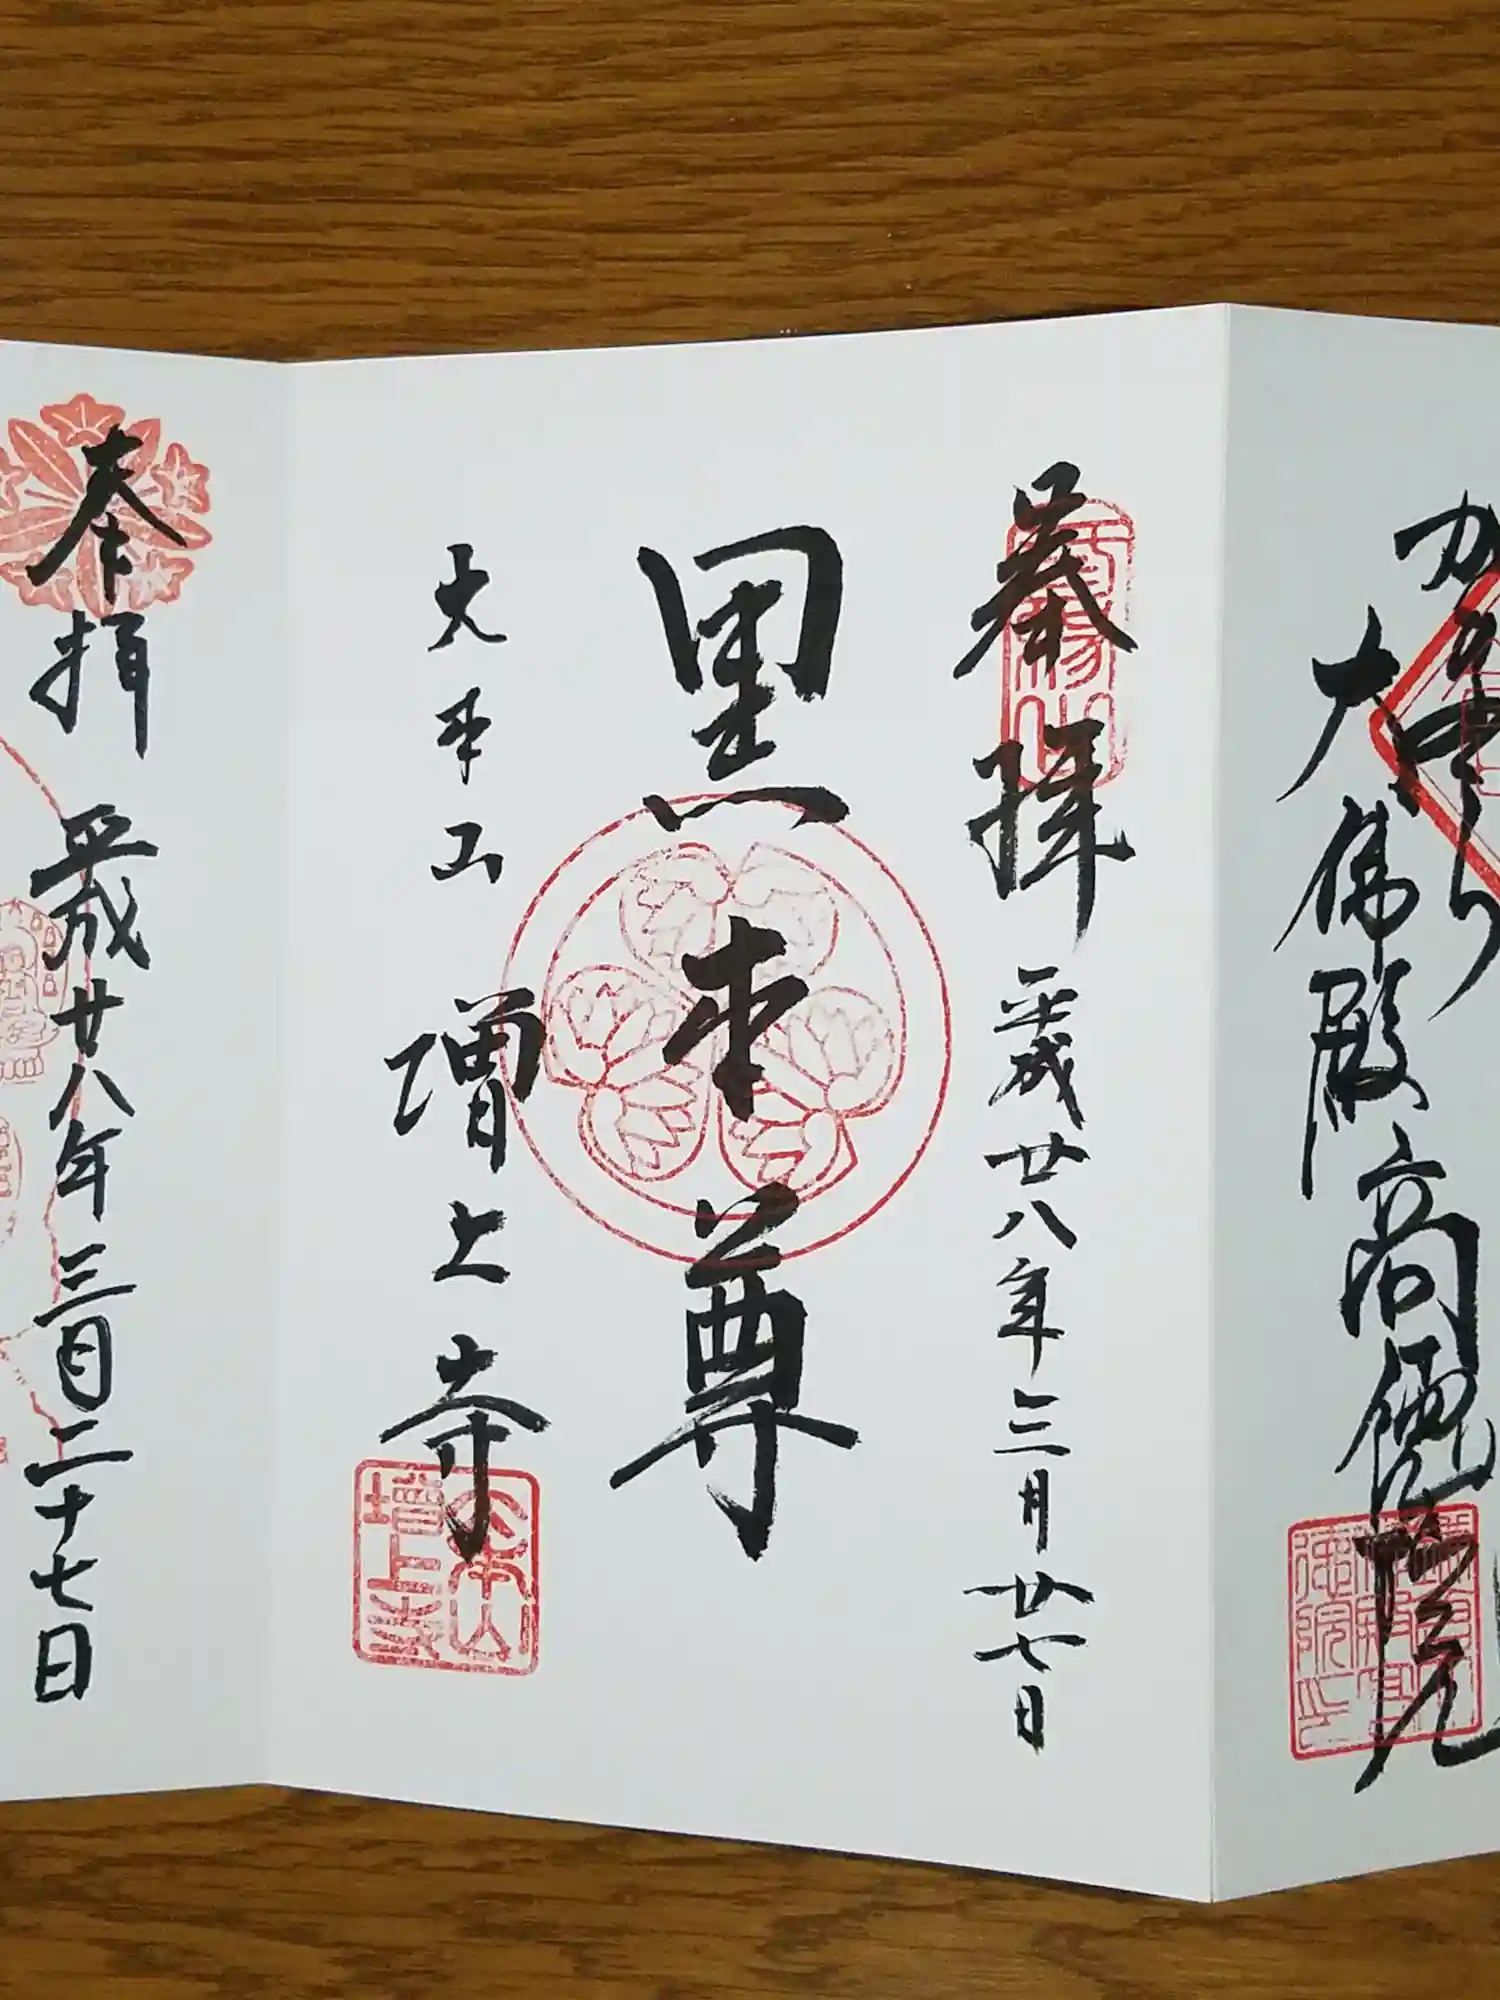 大佛殿高徳院
奉拝 平成廿八年三月廿七日
黒本尊
大本山 増上寺
大本山
増上寺
奉拝 平成廿八年三月二十七日